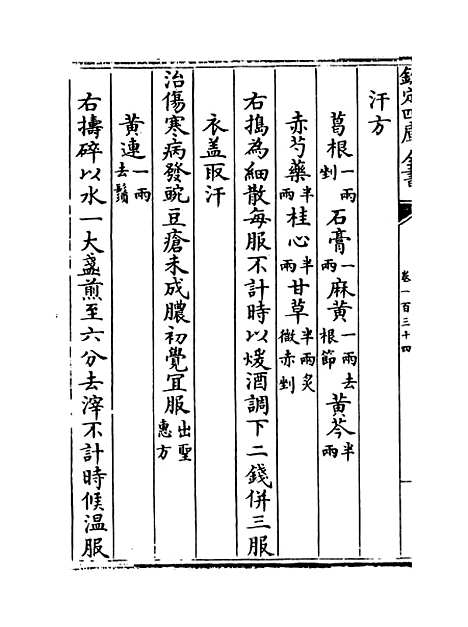 欽定四庫全書
卷一百三十四
汗方
葛根一兩剉 石膏一兩 麻黄一兩去根節 黄芩半兩
赤芍藥半兩 桂心半兩 甘草半兩炙微赤剉
右搗為細散每服不計時以煖酒調下二錢併三服
衣盖取汗
治傷寒病發豌豆瘡未成膿初覺宜服出聖惠方
黄連一兩去鬚
右擣碎以水一大盞煎至六分去滓不計時候温服